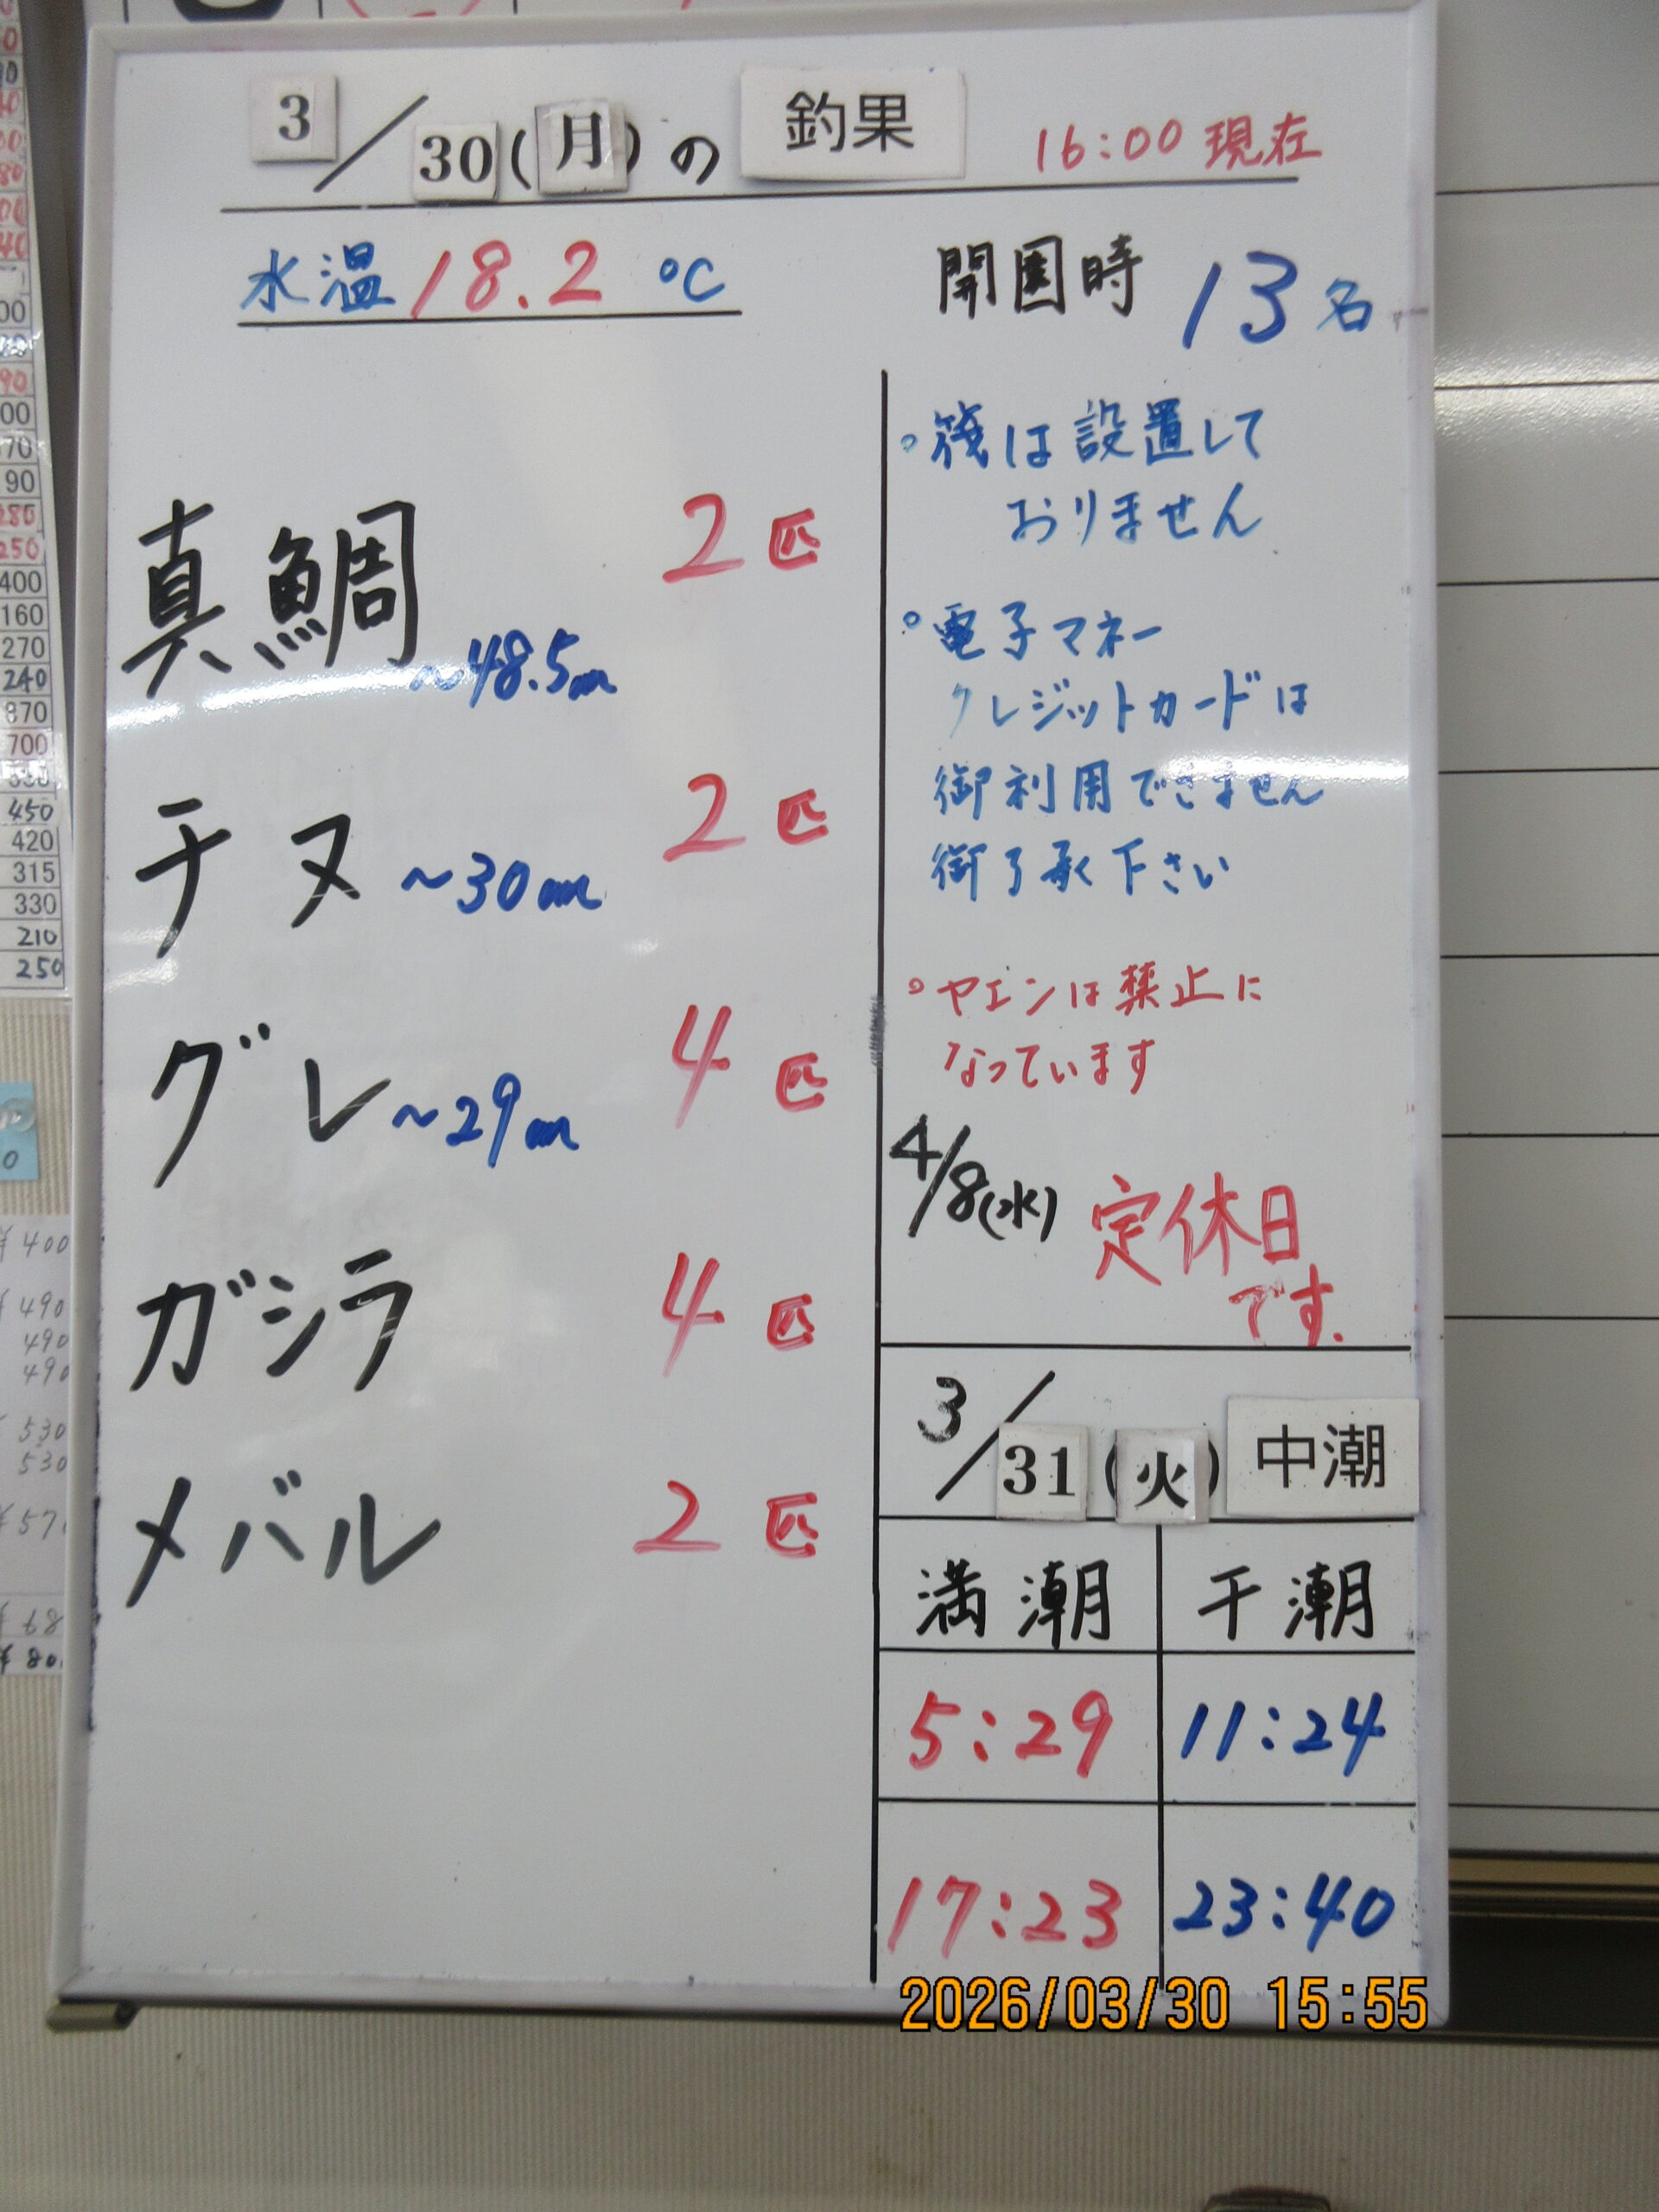 3/30(月)の 釣果 16:00現在
水温 18.2 ℃ 開園時 13名
真鯛 ~48.5cm 2匹
チヌ ~30cm 2匹
グレ ~29cm 4匹
ガシラ 4匹
メバル 2匹
。筏は設置して
おりません
。電子マネー
クレジットカードは
御利用できません
御了承下さい
。ヤエンは禁止に
なっています
4/8(水) 定休日
です.
3/31(火) 中潮
満潮 干潮
5:29 11:24
17:23 23:40
2026/03/30 15:55
400
160
270
240
870
700
450
420
315
330
210
250
¥400
490
490
490
530
530